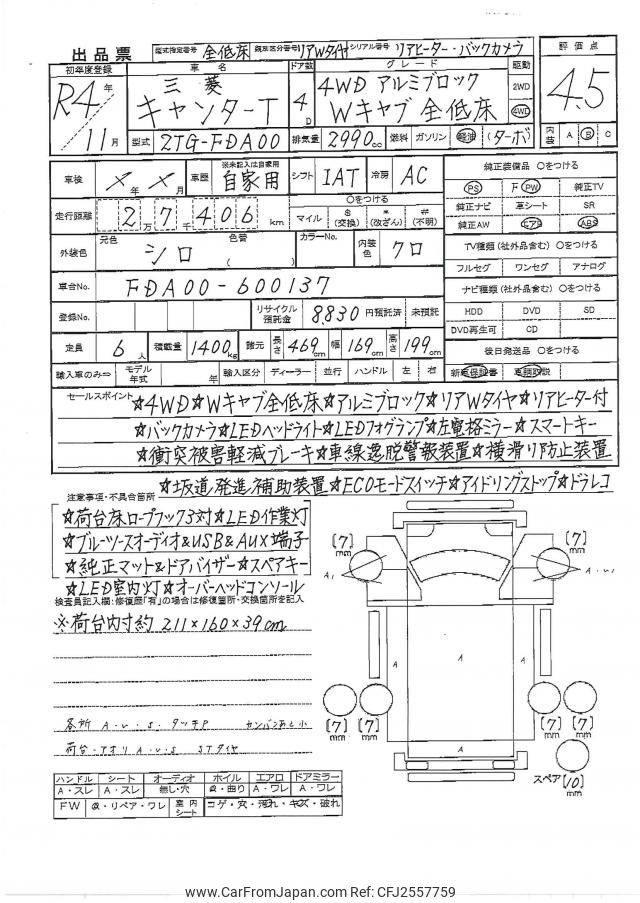 出品票 型式指定番号 全低床 類別区分番号 リアWタイヤ シリアル番号 リアヒーター・バックカメラ
初年度登録 車名 ドア数 グレード 駆動 評価点
R4年 三菱 4D 4WD アルミブロック 2WD 4.5
11月 キャンターT Wキャブ 全低床 4WD
型式 2TG-FDA00 排気量 2990cc 燃料 ガソリン 軽油 (ターボ) 内装 A B C
車検 ×年×月 車歴 ※未記入は自家用 自家用 シフト IAT 冷房 AC 純正装備品 ○をつける
走行距離 2万7千406km ○をつける マイル $(交換) *(改ざん) #(不明) PS PW 純正TV
純正ナビ 革シート SR
純正AW エアB ABS
外装色 元色 シロ 色替 ( ) カラーNo. 内装色 クロ TV種類(社外品含む) ○をつける
フルセグ ワンセグ アナログ
車台No. FDA00-600137 ナビ種類(社外品含む) ○をつける
登録No. リサイクル預託金 8,830円預託済 未預託 HDD DVD SD
DVD再生可 CD
定員 6人 積載量 1400kg 諸元 長さ 469cm 幅 169cm 高さ 199cm 後日発送品 ○をつける
輸入車のみ⇒ モデル年式 年 輸入区分 ディーラー 並行 ハンドル 左 右 新車保証書 車輌取説
セールスポイント ☆4WD☆Wキャブ全低床☆アルミブロック☆リアWタイヤ☆リアヒーター付
☆バックカメラ☆LEDヘッドライト☆LEDフォグランプ☆左電格ミラー☆スマートキー
☆衝突被害軽減ブレーキ☆車線逸脱警報装置☆横滑り防止装置
☆坂道発進補助装置☆ECOモードスイッチ☆アイドリングストップ☆ドラレコ
注意事項・不具合箇所
☆荷台床ロープフック3対☆LED作業灯
☆ブルーツースオーディオ&USB&AUX端子
☆純正マット&ドアバイザー☆スペアキー
☆LED室内灯☆オーバーヘッドコンソール
検査員記入欄:修復歴「有」の場合は修復箇所・交換箇所を記入
※荷台内寸約 211×160×39cm
各所 A.U.S.タッチP カンバンあと小
荷台・アオリ A.U.S STタイヤ
(7)mm (7)mm
A1 A.U1
A A A
A
(7)mm (7)mm (7)mm (7)mm
スペア (10)mm
ハンドル シート オーディオ ホイル エアロ ドアミラー
A・スレ A・スレ 無し・穴 曲り A・ワレ A・ワレ
FW リペア・ワレ 室内シート コゲ・穴・汚れ・キズ・破れ
www.CarFromJapan.com Ref: CFJ2557759